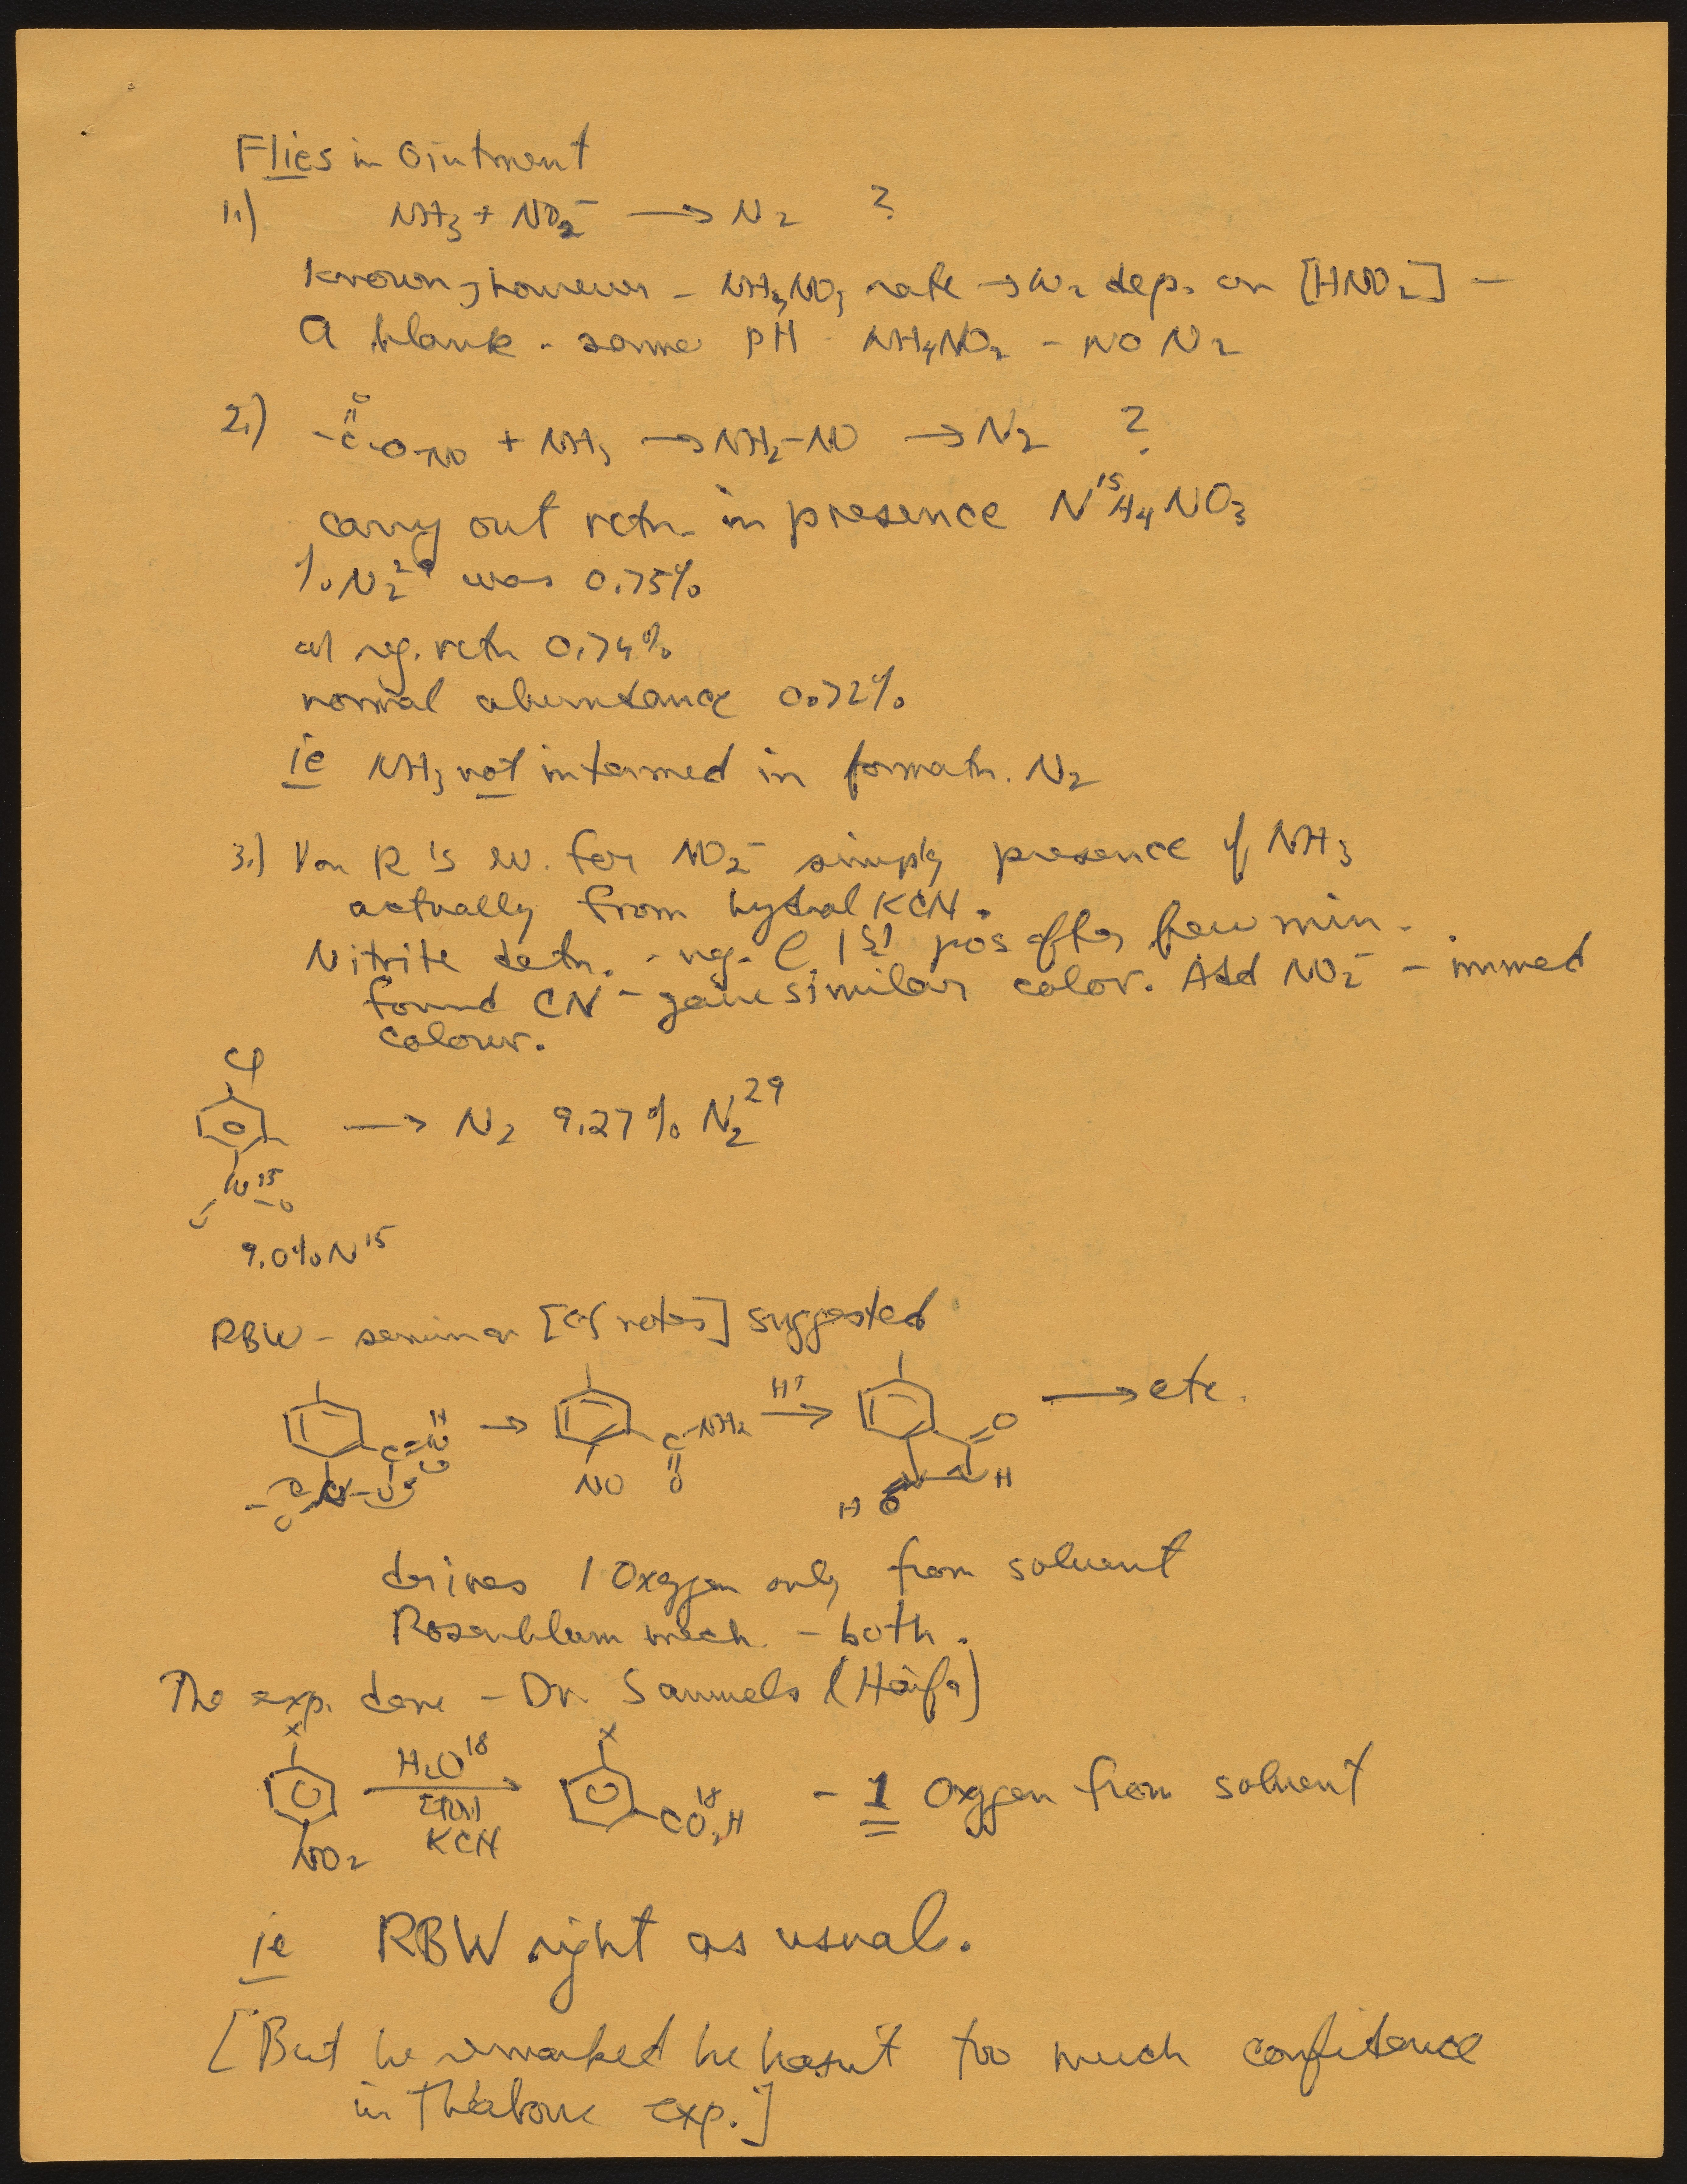 Flies in Ointment
1.) NH3 + NO2⁻ → N2 ?
Known, however - NH4NO2 rate → N2 dep. on [HNO2] -
A blank - same pH - NH4NO2 - NO N2
2.) -C(=O)-O-NO + NH3 → NH2-NO → N2 ?
carry out rctn. in presence N¹⁵H4NO3
% N2²⁹ was 0.75%
reg. rctn 0.74%
normal abundance 0.72%
ie NH3 not intermed in formatn. N2
3.) Von R's ev. for NO2⁻ simply presence of NH3
actually from hydrol KCN.
Nitrite detn. - neg. @ 1st pos after few min.
found CN⁻ gave similar color. Add NO2⁻ - immed
colour.
Cl
→ N2 9.27% N2²⁹
N¹⁵
O O
9.0% N¹⁵
RBW - seminar [cf notes] suggested
→ H⁺ → → etc.
C NH2 O
NO O N H
H O
derives 1 Oxygen only from solvent
Rosenblum mech - both.
The exp. done - Dr. Samuels (Haifa)
X X
H2O¹⁸ → - 1 Oxygen from solvent
EtOH CO2¹⁸H
NO2 KCN
ie RBW right as usual.
[But he remarked he hasn't too much confidence
in the above exp.]